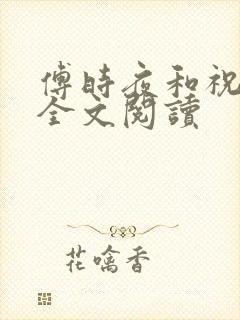 傅時夜和祝
全文閱讀
花噙香